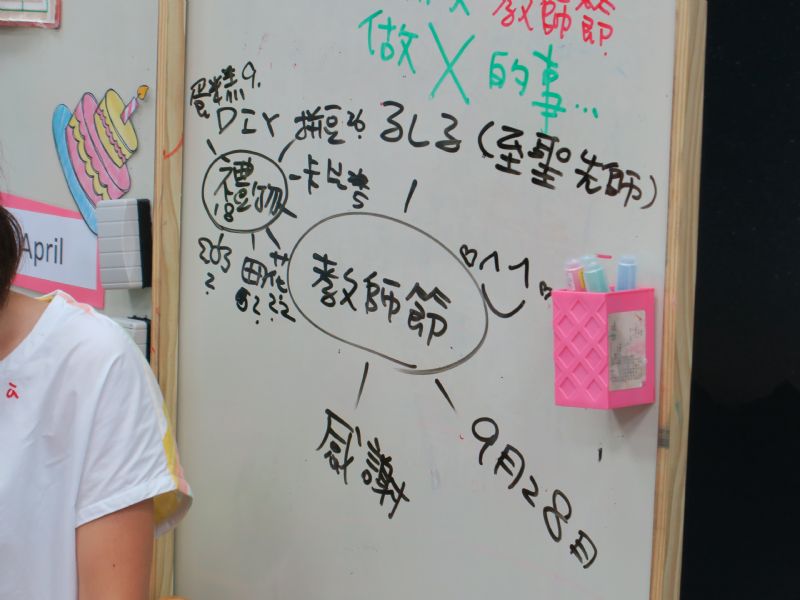 教師節
做X的事...
蛋糕9.
DIY
拼豆26
ㄋㄟㄋ(至聖先師)
禮物
18
卡片
5
April
花
22
教師節
感謝
9月28日